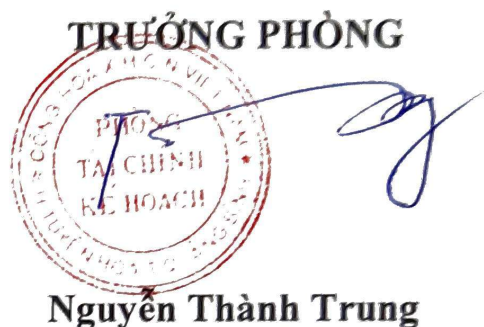 TRƯỞNG PHÒNG
PHÒNG
TÀI CHÍNH
KẾ HOẠCH
Nguyễn Thành Trung